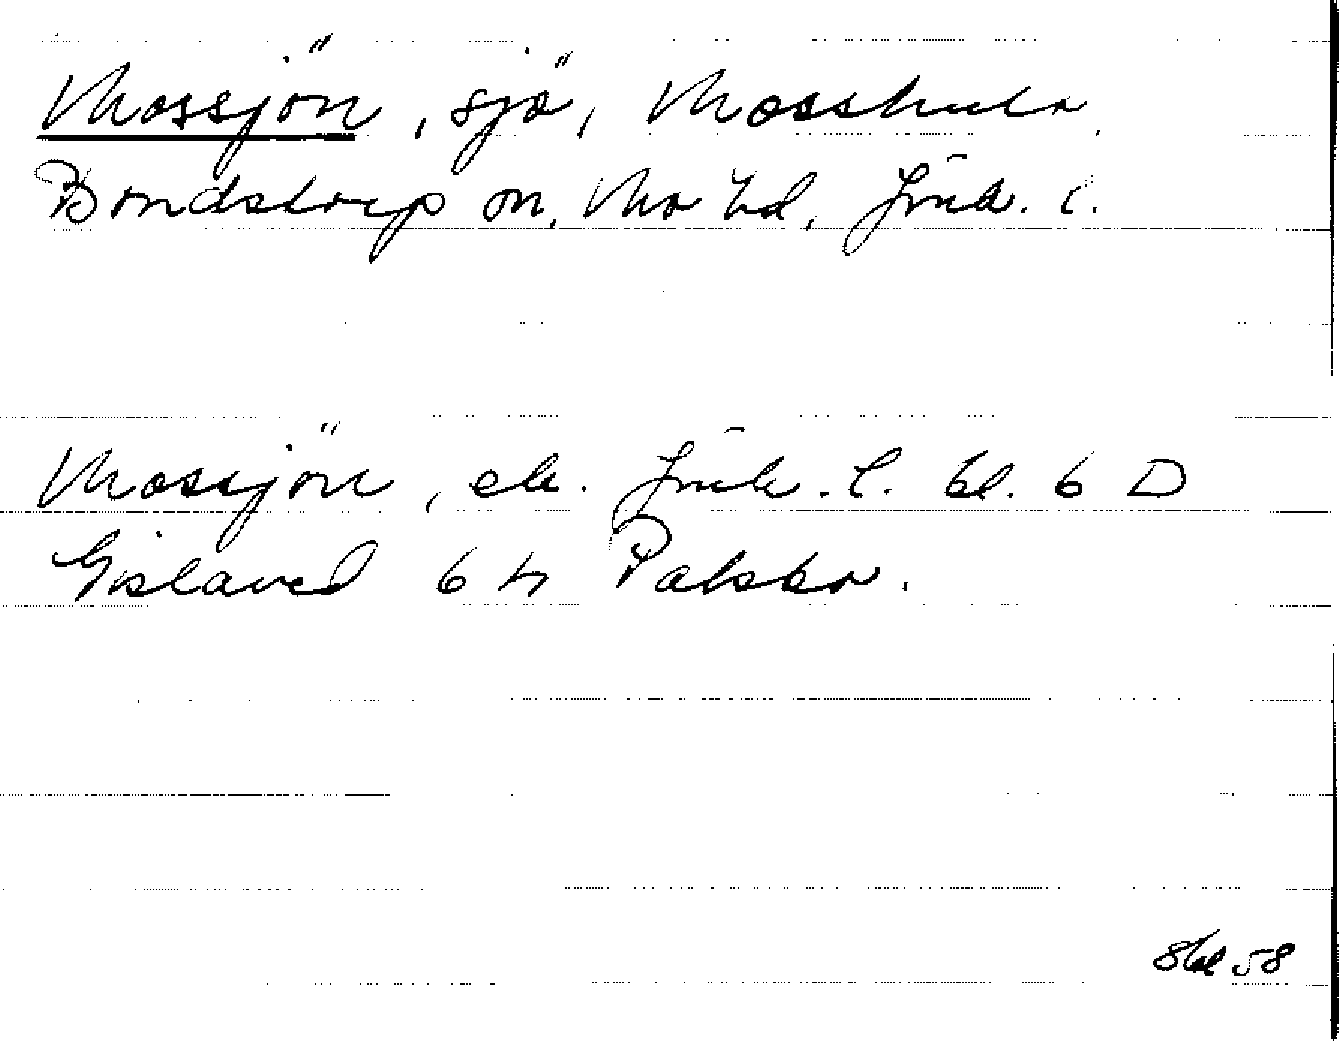 Mossjön, sjö, Mosshult.
Bondstorp sn, Mo hd, Jönk. l.
Mossjön, ek. Jönk. l. bl. 6 D
Gislaved 6 h
58